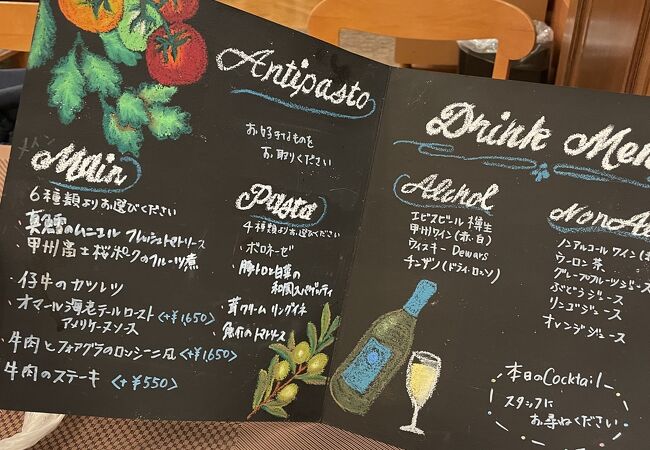 Antipasto
お好きなものを
お取りください
メイン
Main
6種類よりお選びください
真鱈のムニエル フレッシュトマトソース
・甲州富士桜ポークのフルーツ煮
・仔牛のカツレツ
・オマール海老テールロースト <+¥1,650>
アメリケーヌソース
・牛肉とフォアグラのロッシーニ風 <+¥1,650>
牛肉のステーキ <+¥550>
Pasta
4種類よりお選びください
・ボロネーゼ
・豚トロと白菜の
和風スパゲッティ
茸クリーム リングイネ
・魚介のトマトソース
Drink Men
Alcohol
エビスビール 樽生
甲州ワイン(赤・白)
ウィスキー Dewars
チンザノ(ドライ・ロッソ)
NonAl
ノンアルコール ワイン(
ウーロン茶
グレープフルーツジュース
ぶどうジュース
リンゴジュース
オレンジジュース
本日のCocktail
スタッフに
お尋ねください